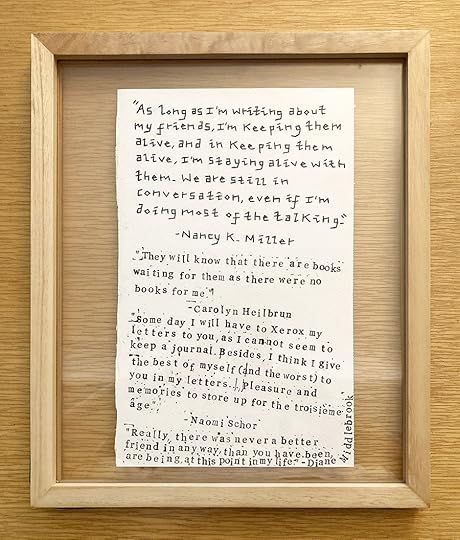 "As long as I'm writing about
my friends, I'm keeping them
alive, and in keeping them
alive, I'm staying alive with
them. We are still in
conversation, even if I'm
doing most of the talking."
-Nancy K. Miller
"They will know that there are books
waiting for them as there were no
books for me."
-Carolyn Heilbrun
"Some day I will have to Xerox my
letters to you, as I cannot seem to
keep a journal. Besides, I think I give
the best of myself (and the worst) to
you in my letters. Pleasure and
memories to store up for the troisieme
âge."
-Naomi Schor
"Really, there was never a better
friend in any way, than you have been,
are being, at this point in my life." -Diane
Middlebrook